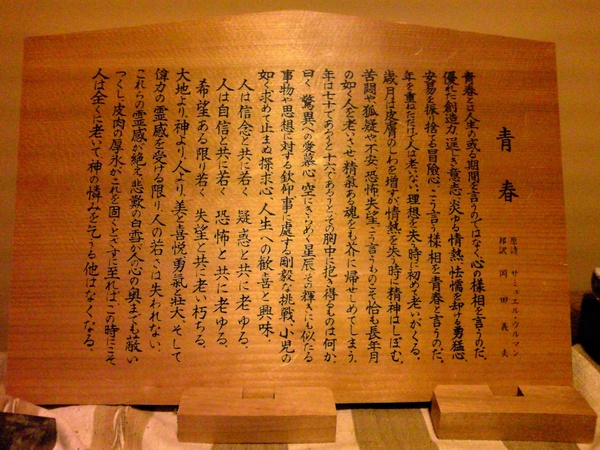 青春
原詩 サミュエル・ウルマン
邦訳 岡田義夫
青春とは人生の或る期間を言うのではなく心の様相を言うのだ、
優れた創造力、逞しき意志、炎ゆる情熱、怯懦を却ける勇猛心、
安易を振り捨てる冒険心、こう言う様相を青春と言うのだ、
年を重ねただけで人は老いない、理想を失う時に初めて老いがくる、
歳月は皮膚のしわを増すが情熱を失う時に精神はしぼむ、
苦闘や狐疑や不安、恐怖、失望、こう言うものこそ恰も長年月
の如く人を老いさせ、精気ある魂をも芥に帰せしめてしまう、
年は七十であろうと十六であろうと、その胸中に抱き得るものは何か、
曰く、驚異への愛慕心、空にきらめく星辰、その輝きにも似たる
事物や思想に対する欽仰、事に処する剛毅な挑戦、小児の
如く求めて止まぬ探求心、人生への歓喜と興味、
人は信念と共に若く 疑惑と共に老ゆる、
人は自信と共に若く 恐怖と共に老ゆる、
希望ある限り若く 失望と共に老い朽ちる、
大地より、神より、人より、美と喜悦、勇氣と壮大、そして
偉力の霊感を受ける限り、人の若さは失われない、
これらの霊感が絶え、悲歎の白雪が人の心の奥までも蔽い
つくし、皮肉の厚氷がこれを固くとざすに至れば、この時にこそ
人は全くに老いて神の憐みを乞うる他はなくなる、